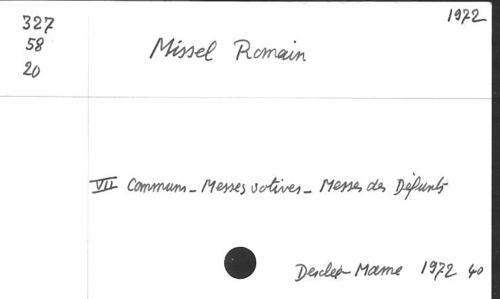 1972
327
58
20
Missel Romain
VII Communs - Messes votives - Messes des Défunts
Desclée - Mame 1972 40